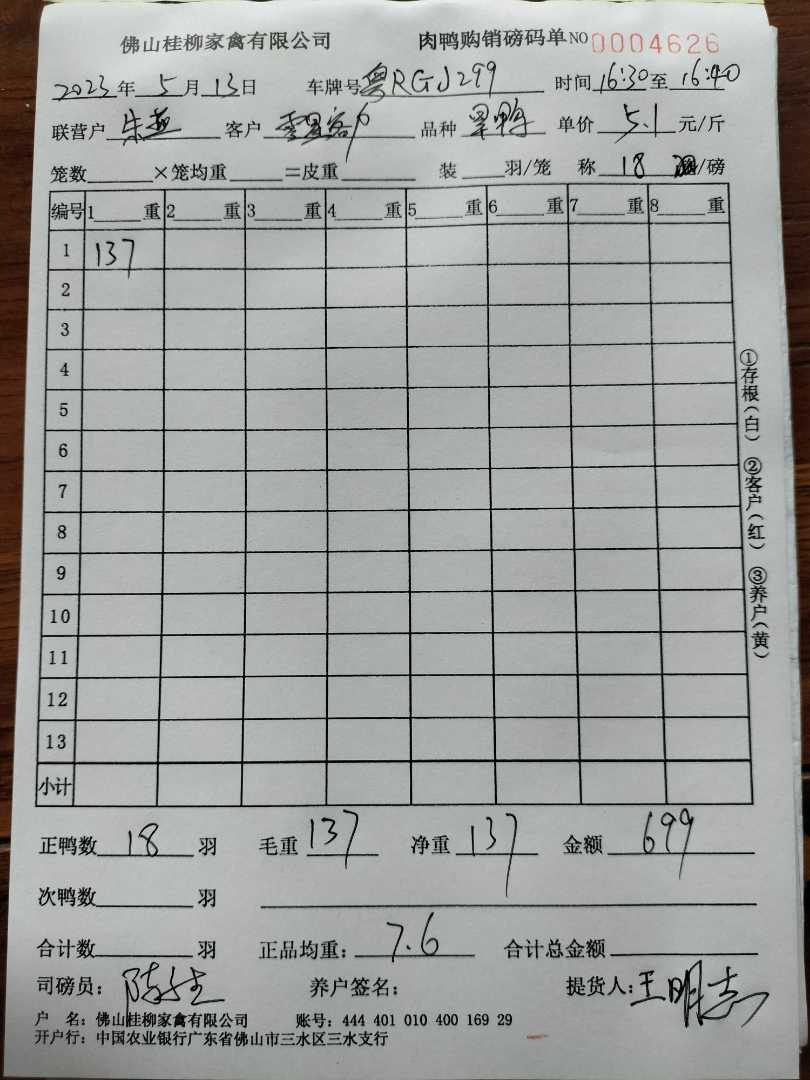 佛山桂柳家禽有限公司 肉鸭购销磅码单 NO 0004626
2023年 5 月 13 日 车牌号 粤RGJ299 时间 16:30 至 16:40
联营户 朱 客户 零星客户 品种 单价 5.1 元/斤
笼数 ×笼均重 =皮重 装 羽/笼 称 18 /磅
编号 1 重 2 重 3 重 4 重 5 重 6 重 7 重 8 重
1 137
2
3
4
5
6
7
8
9
10
11
12
13
小计
①存根(白) ②客户(红) ③养户(黄)
正鸭数 18 羽 毛重 137 净重 137 金额 699
次鸭数 羽
合计数 羽 正品均重: 7.6 合计总金额
司磅员: 养户签名: 提货人: 王明志
户 名: 佛山桂柳家禽有限公司 账号: 444 401 010 400 169 29
开户行: 中国农业银行广东省佛山市三水区三水支行